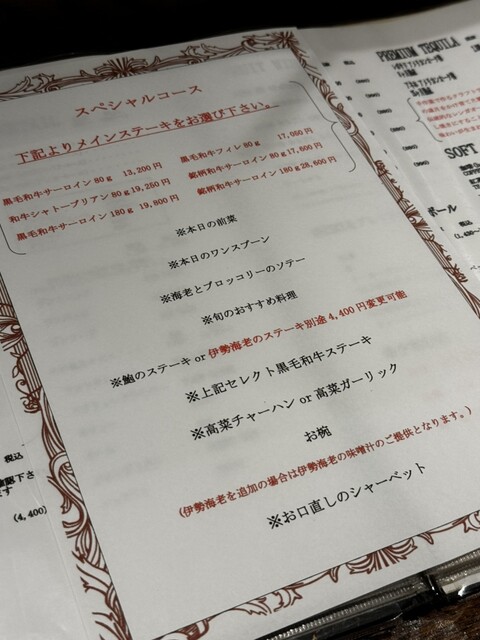 スペシャルコース
下記よりメインステーキをお選び下さい。
黒毛和牛サーロイン80g 13,200円
和牛シャトーブリアン80g 19,250円
黒毛和牛サーロイン180g 19,800円
黒毛和牛フィレ80g 17,050円
銘柄和牛サーロイン80g 17,600円
銘柄和牛サーロイン180g 28,600円
※本日の前菜
※本日のワンスプーン
※海老とブロッコリーのソテー
※旬のおすすめ料理
※鮑のステーキ or 伊勢海老のステーキ別途4,400円変更可能
※上記セレクト黒毛和牛ステーキ
※高菜チャーハン or 高菜ガーリック
お椀
(伊勢海老を追加の場合は伊勢海老の味噌汁のご提供となります。)
※お口直しのシャーベット
税込
(4,400)
PREMIUM TEQUILA
SOFT
ボール